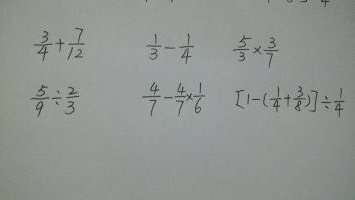 3/4 + 7/12   1/3 - 1/4   5/3 × 3/7
5/9 ÷ 2/3   4/7 - 4/7 × 1/6   [1-(1/4 + 3/8)] ÷ 1/4